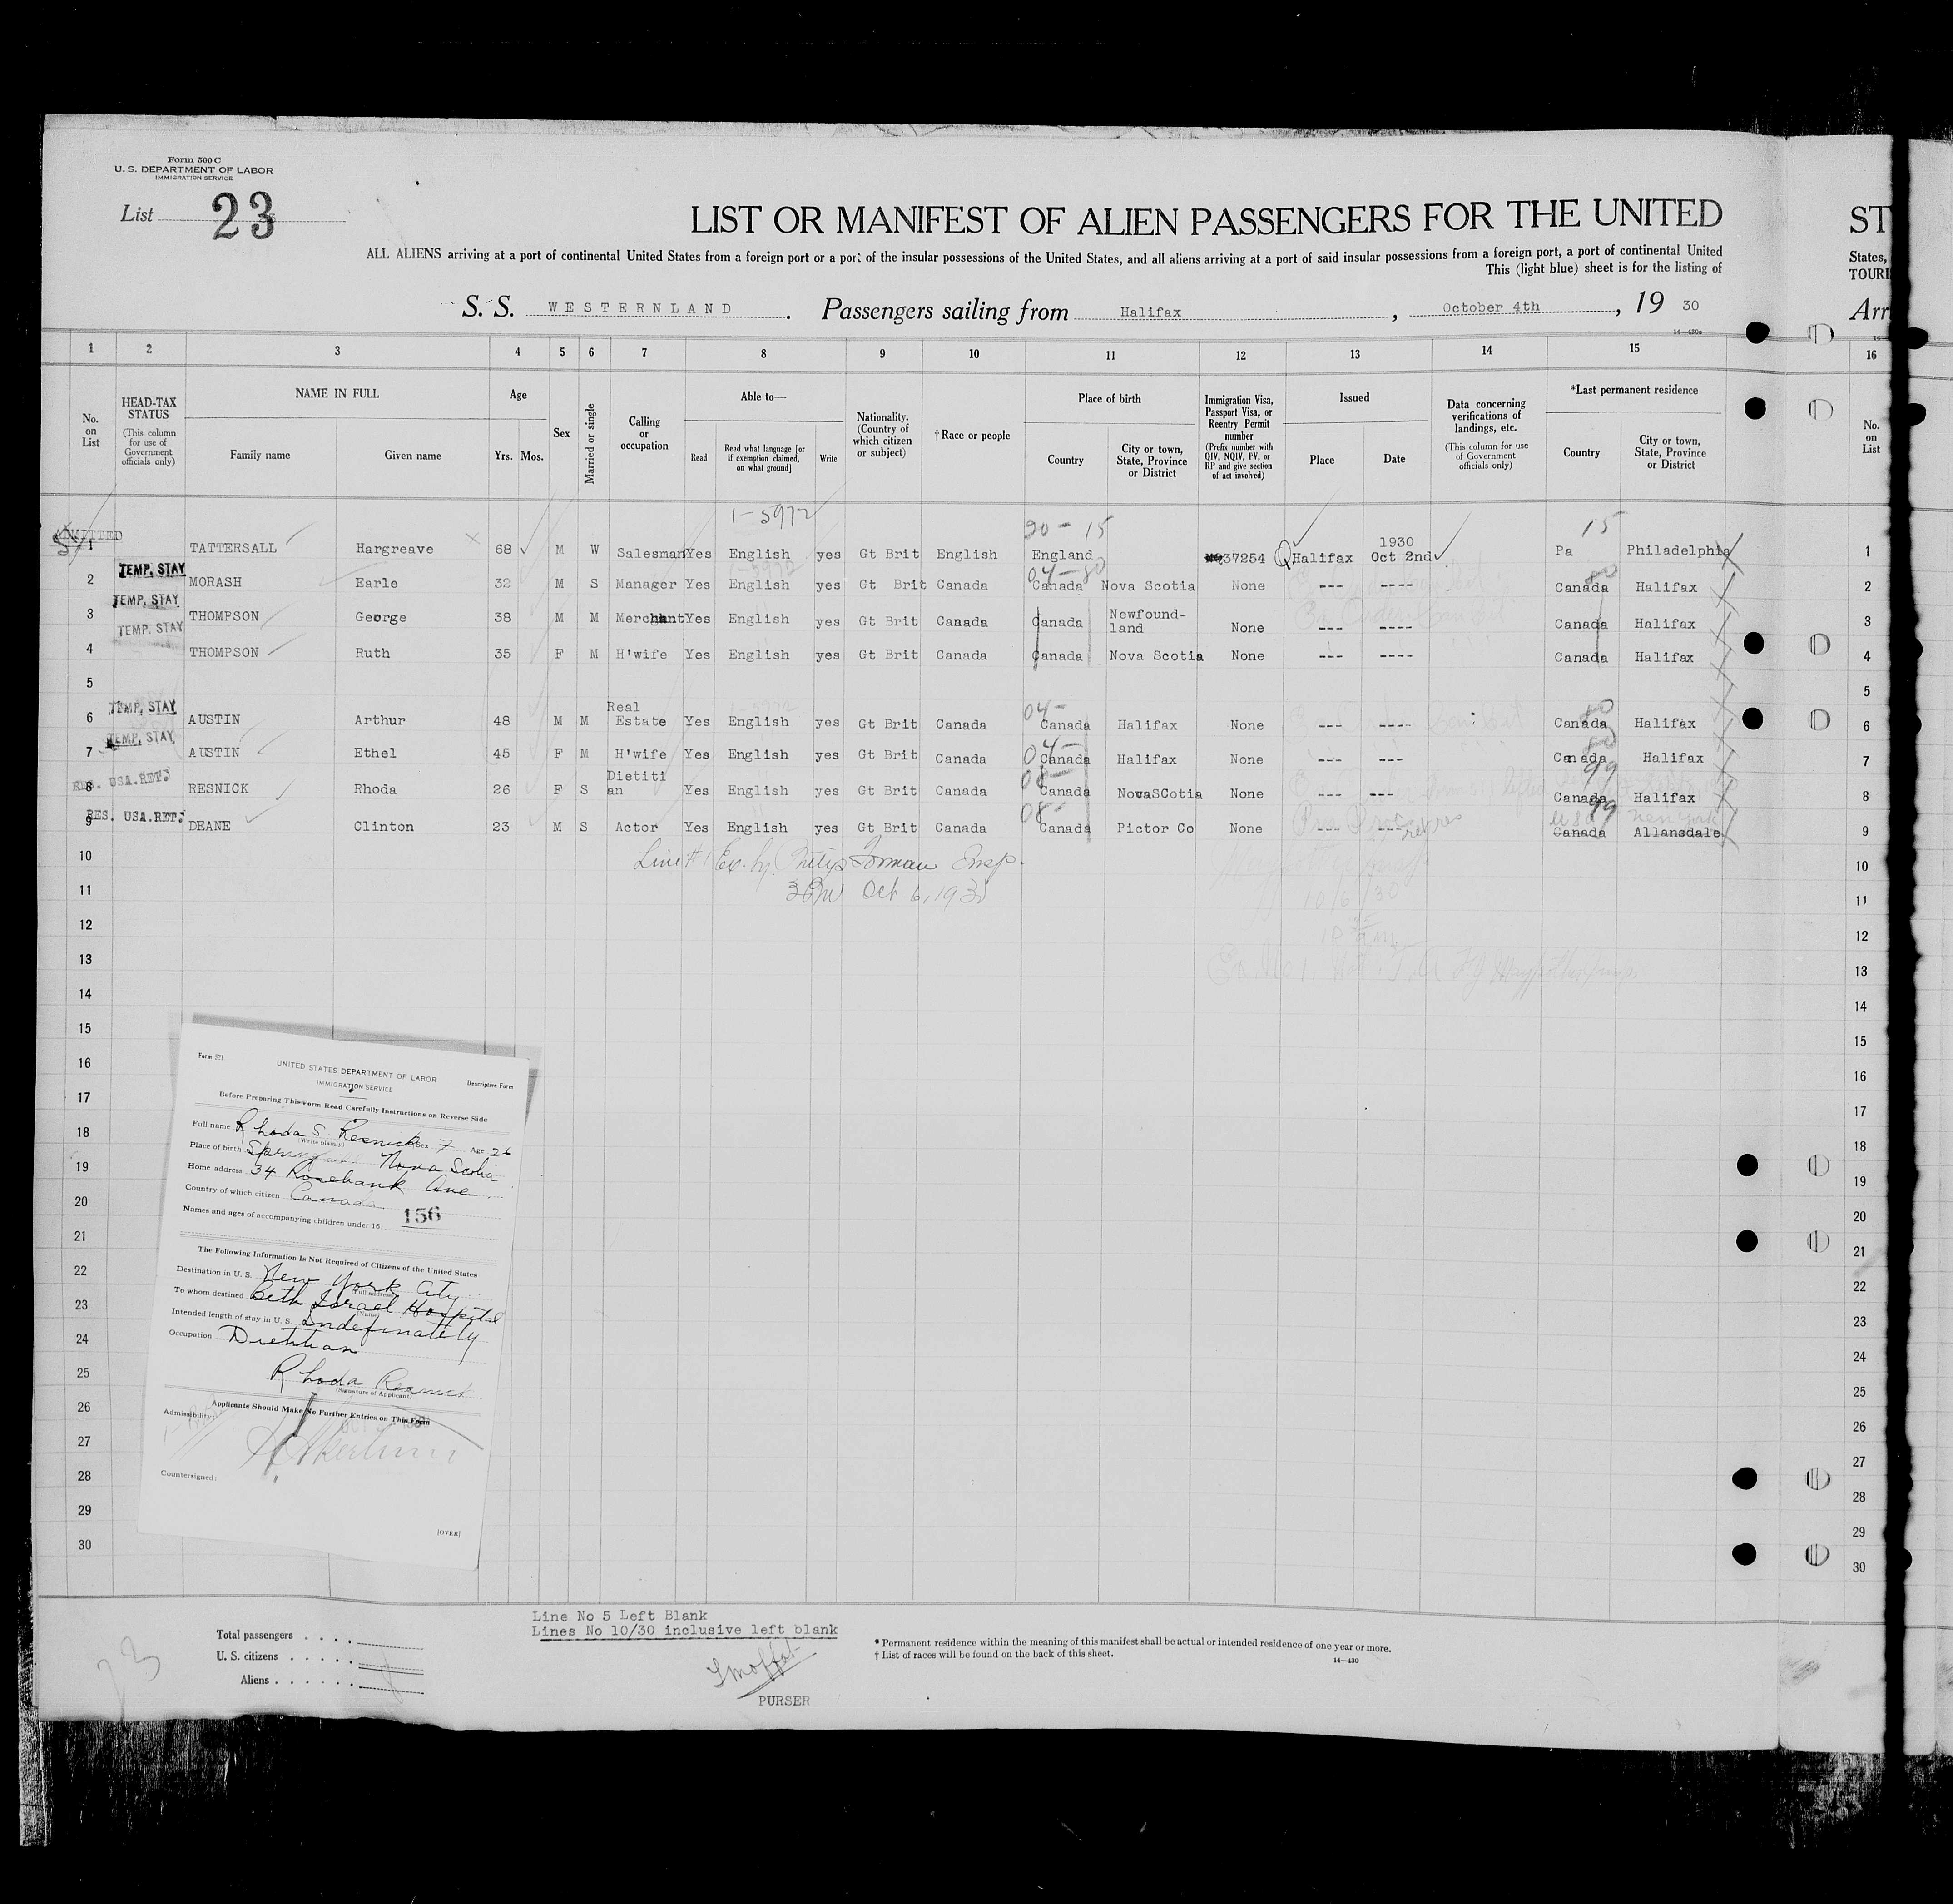 Form 500 C
U. S. DEPARTMENT OF LABOR
IMMIGRATION SERVICE
List 23
LIST OR MANIFEST OF ALIEN PASSENGERS FOR THE UNITED ST
ALL ALIENS arriving at a port of continental United States from a foreign port or a port of the insular possessions of the United States, and all aliens arriving at a port of said insular possessions from a foreign port, a port of continental United States,
This (light blue) sheet is for the listing of TOURI
S. S. WESTERNLAND. Passengers sailing from Halifax, October 4th, 19 30 Arr
14—430a
1 2 3 4 5 6 7 8 9 10 11 12 13 14 15 16
No. on List
HEAD-TAX STATUS
(This column for use of Government officials only)
NAME IN FULL
Family name Given name
Age
Yrs. Mos.
Sex
Married or single
Calling or occupation
Able to—
Read
Read what language [or if exemption claimed, on what ground]
Write
Nationality. (Country of which citizen or subject)
†Race or people
Place of birth
Country
City or town, State, Province or District
Immigration Visa, Passport Visa, or Reentry Permit number
(Prefix number with QIV, NQIV, PV, or RP and give section of act involved)
Issued
Place Date
Data concerning verifications of landings, etc.
(This column for use of Government officials only)
*Last permanent residence
Country
City or town, State, Province or District
No. on List
1-5972 20-15 15
ADMITTED
1 TATTERSALL Hargreave 68 M W Salesman Yes English yes Gt Brit English England 37254 Halifax 1930 Oct 2nd Pa Philadelphia 1
1-5972 04-80 80
2 TEMP. STAY MORASH Earle 32 M S Manager Yes English yes Gt Brit Canada Canada Nova Scotia None --- ---- Canada Halifax 2
3 TEMP. STAY THOMPSON George 38 M M Merchant Yes English yes Gt Brit Canada Canada Newfound-land None --- ---- Canada Halifax 3
4 TEMP. STAY THOMPSON Ruth 35 F M H'wife Yes English yes Gt Brit Canada Canada Nova Scotia None --- ---- Canada Halifax 4
5 5
1-5972 04- 80
6 TEMP. STAY AUSTIN Arthur 48 M M Real Estate Yes English yes Gt Brit Canada Canada Halifax None --- ---- Canada Halifax 6
04- 80
7 TEMP. STAY AUSTIN Ethel 45 F M H'wife Yes English yes Gt Brit Canada Canada Halifax None --- --- Canada Halifax 7
08- 99
8 RES. USA. RET. RESNICK Rhoda 26 F S Dietitian Yes English yes Gt Brit Canada Canada NovaSCotia None --- --- Canada Halifax 8
08- 99
USA New York
9 RES. USA. RET. DEANE Clinton 23 M S Actor Yes English yes Gt Brit Canada Canada Pictor Co None --- --- Canada Allansdale 9
10 10
Insp.
11 Oct 6, 1930 10/6/30 11
12 12
13 13
14 14
15 15
16 16
17 17
18 18
19 19
20 20
21 21
22 22
23 23
24 24
25 25
26 26
27 27
28 28
29 29
30 30
Form 521
UNITED STATES DEPARTMENT OF LABOR
IMMIGRATION SERVICE
Descriptive Form
Before Preparing This Form Read Carefully Instructions on Reverse Side
Full name Rhoda S. Resnick Sex F Age 26
(Write plainly)
Place of birth Nova Scotia
Home address 34 Rosebank Ave
Country of which citizen Canada
Names and ages of accompanying children under 16: 156
The Following Information Is Not Required of Citizens of the United States
Destination in U. S. New York City
(Full address)
To whom destined Beth Israel Hospital
(Name)
Intended length of stay in U. S. Indefinately
Occupation Dietitian
Rhoda Resnick
(Signature of Applicant)
Applicants Should Make No Further Entries on This Form
Admissibility:
Countersigned:
[OVER]
Total passengers
U. S. citizens
Aliens
Line No 5 Left Blank
Lines No 10/30 inclusive left blank
PURSER
* Permanent residence within the meaning of this manifest shall be actual or intended residence of one year or more.
† List of races will be found on the back of this sheet.
14—430